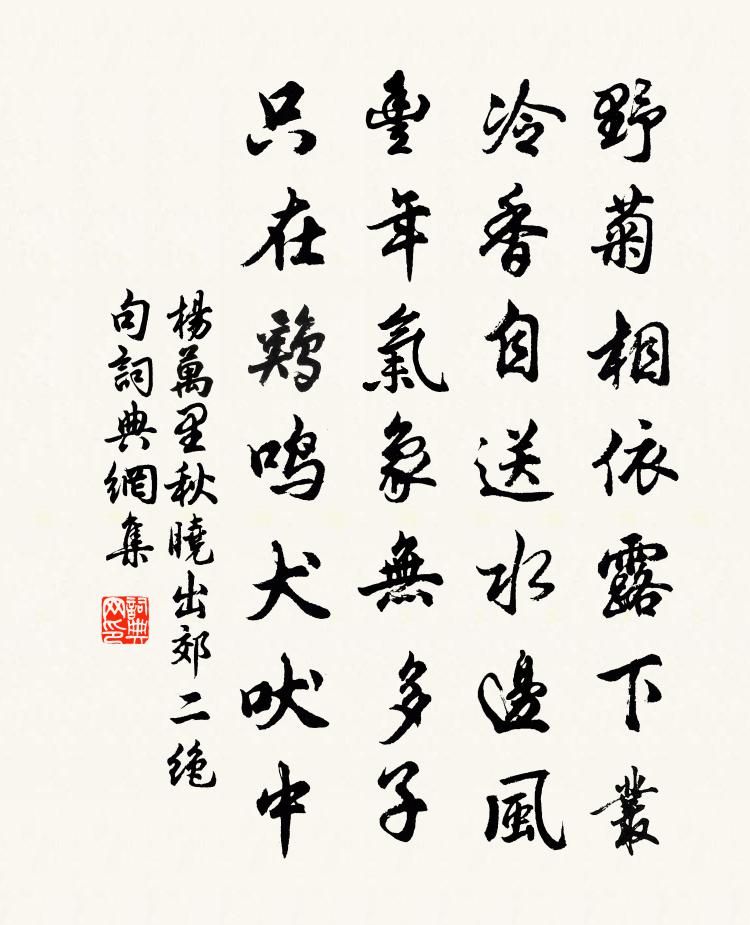 野菊相依露下叢
冷香自送水邊風
豐年氣象無多子
只在鷄鳴犬吠中
楊萬里秋曉出郊二絶
句詞典網集
詞典
网印